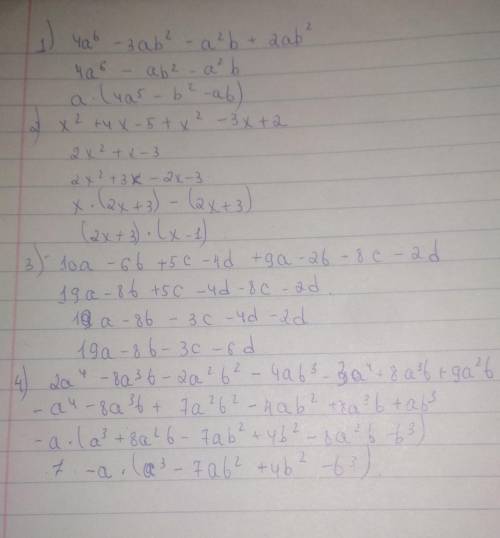 1) 4a⁶ - 3ab² - a²b + 2ab²
4a⁶ - ab² - a²b
a·(4a⁵ - b² - ab)
2) x² + 4x - 5 + x² - 3x + 2
2x² + x - 3
2x² + 3x - 2x - 3
x·(2x + 3) - (2x + 3)
(2x + 3)·(x - 1)
3) 10a - 6b + 5c - 4d + 9a - 2b - 8c - 2d
19a - 8b + 5c - 4d - 8c - 2d
19a - 8b - 3c - 4d - 2d
19a - 8b - 3c - 6d
4) 2a⁴ - 8a³b - 2a²b² - 4ab³ - 3a⁴ + 8a³b + 9a²b
- a⁴ - 8a³b + 7a²b² - 4ab² + 8a³b + ab³
- a·(a³ + 8a²b - 7ab² + 4b² - 8a²b - b³)
7. - a·(a³ - 7ab² + 4b² - b³)